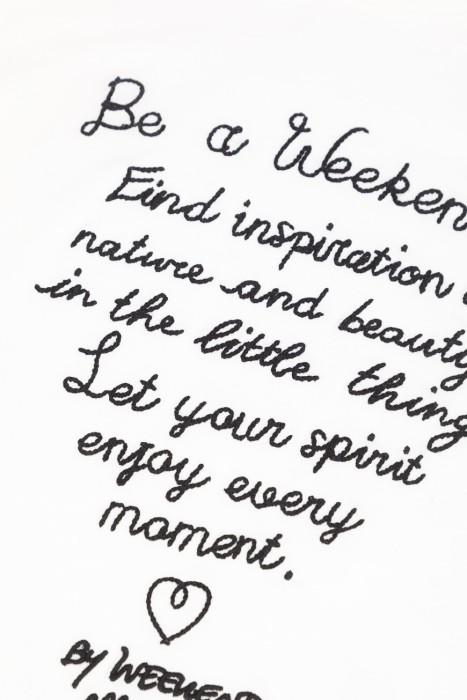 Be a Weeken
Find inspiration
nature and beauty
in the little thing
Let your spirit
enjoy every
moment.
BY WEEKEND